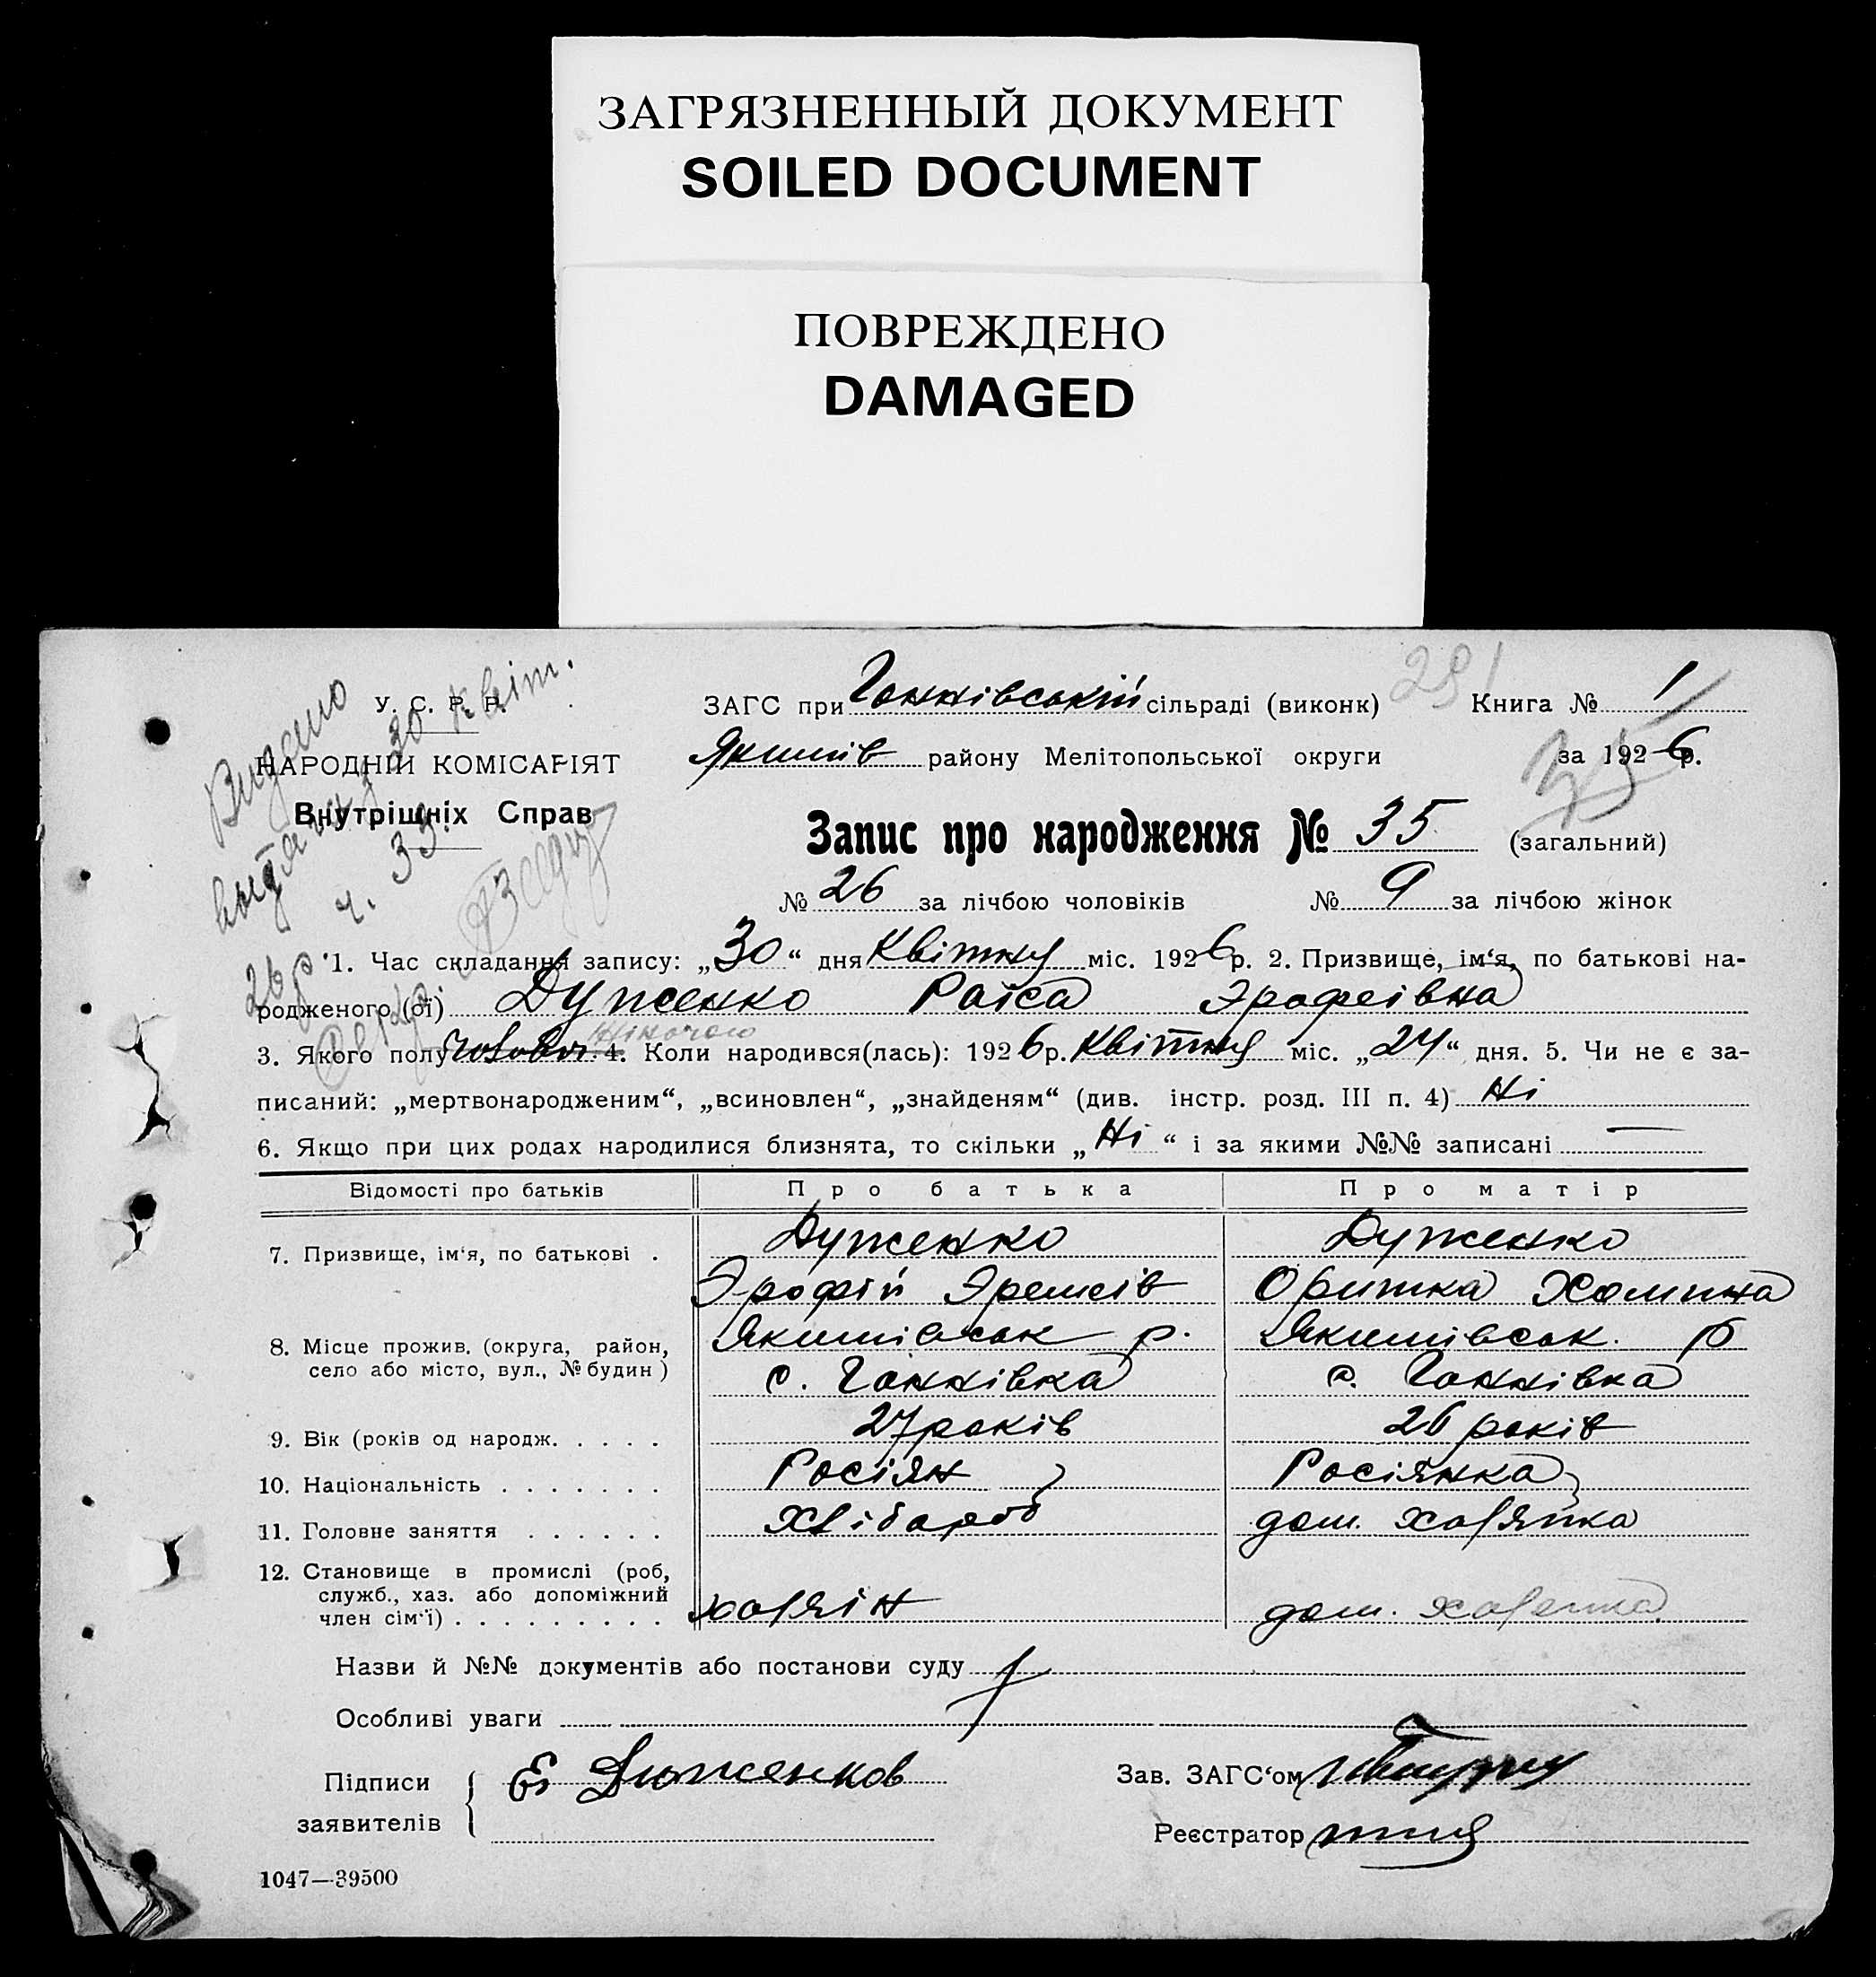 ЗАГРЯЗНЕННЫЙ ДОКУМЕНТ
SOILED DOCUMENT
ПОВРЕЖДЕНО
DAMAGED
Видано
витяг из 30 квіт.
26 р ч. 33.
У. С. Р. Р.
НАРОДНІЙ КОМІСАРІЯТ
Внутрішніх Справ
291
ЗАГС при Ганнівській сільраді (виконк) Книга № 1
Якимів району Мелітопольської округи за 1926 р.
35
Запис про народження № 35 (загальний)
№ 26 за лічбою чоловіків № 9 за лічбою жінок
1. Час складання запису: „30“ дня Квітня міс. 1926 р. 2. Призвище, ім‘я, по батькові на-
родженого (ої) Дуженко Раіса Эрофеівна
жіночого
3. Якого полу 4. Коли народився(лась): 1926 р. Квітня міс. „24“ дня. 5. Чи не є за-
писаний: „мертвонародженим“, „всиновлен“, „знайденям“ (див. інстр. розд. III п. 4) Ні
6. Якщо при цих родах народилися близнята, то скільки „Ні“ і за якими №№ записані —
Відомості про батьків Про батька Про матір
7. Призвище, ім‘я, по батькові . Дуженко Дуженко
Эрофій Эремеів Оришка Хомишна
8. Місце прожив. (округа, район, село або місто, вул., № будин) Якимівськ р. Якимівськ. р
с. Ганнівка с. Ганнівка
9. Вік (років од народж. . . . . 27 років 26 років
10. Національність . . . . . . . Росіян Росіянка
11. Головне заняття . . . . . . Хлібороб дом. хазяйка
12. Становище в промислі (роб, служб., хаз. або допоміжний член сім‘ї) . . . . . . . . . хазяін дом. хазяйка
Назви й №№ документів або постанови суду
Особливі уваги
Підписи заявителів Е Дюженков
Зав. ЗАГС‘ом
Реєстратор
1047—39500